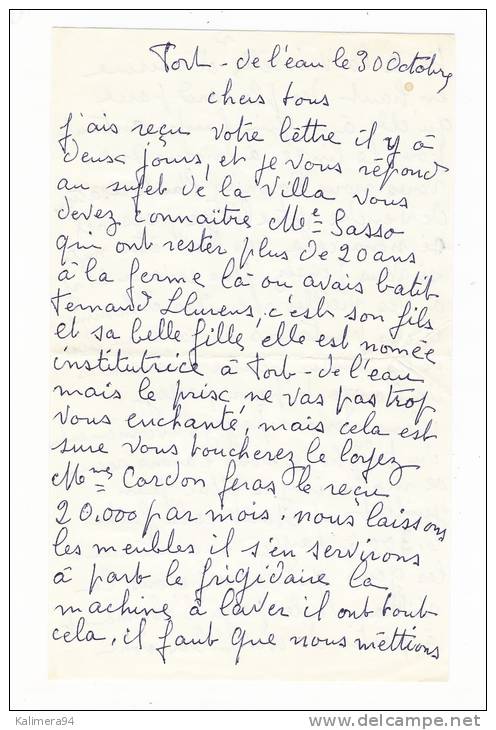 Fort - de l'eau le 30 Octobre
chers tous
j'ais reçu votre lèttre il y à
deux jours, et je vous répond
au sujet de la Villa vous
devez connaitre Me Sasso
qui ont rester plus de 20 ans
à la ferme là ou avais batit
Fernand Llurens, c'est son fils
et sa belle fille, elle est nomée
institutrice à Fort - de l'eau
mais le prix, ne vas pas trop
vous enchanté, mais cela est
sure vous toucherez le loyez
Mme Cardon feras le reçu
20.000 par mois. nous laissons
les meubles il s'en servirons
à part le frigidaire la
machine à laver il ont tout
cela, il faut que nous mèttions
Kalimera94
www.delcampe.net